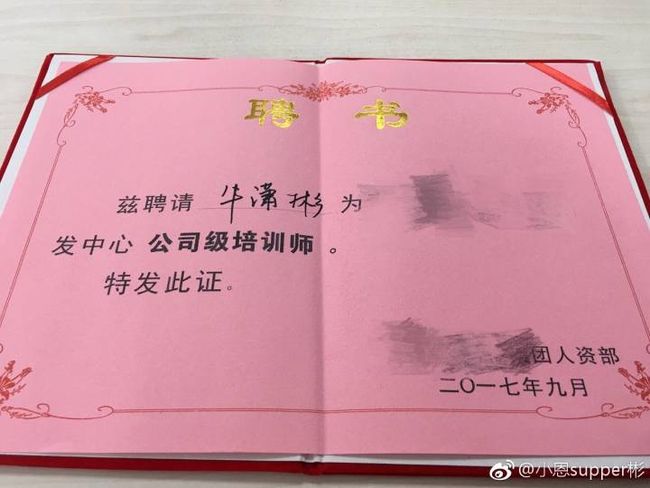 聘书
兹聘请 牛潇彬 为
发中心 公司级培训师。
特发此证。
团人资部
二〇一七年九月
@小恩supper彬